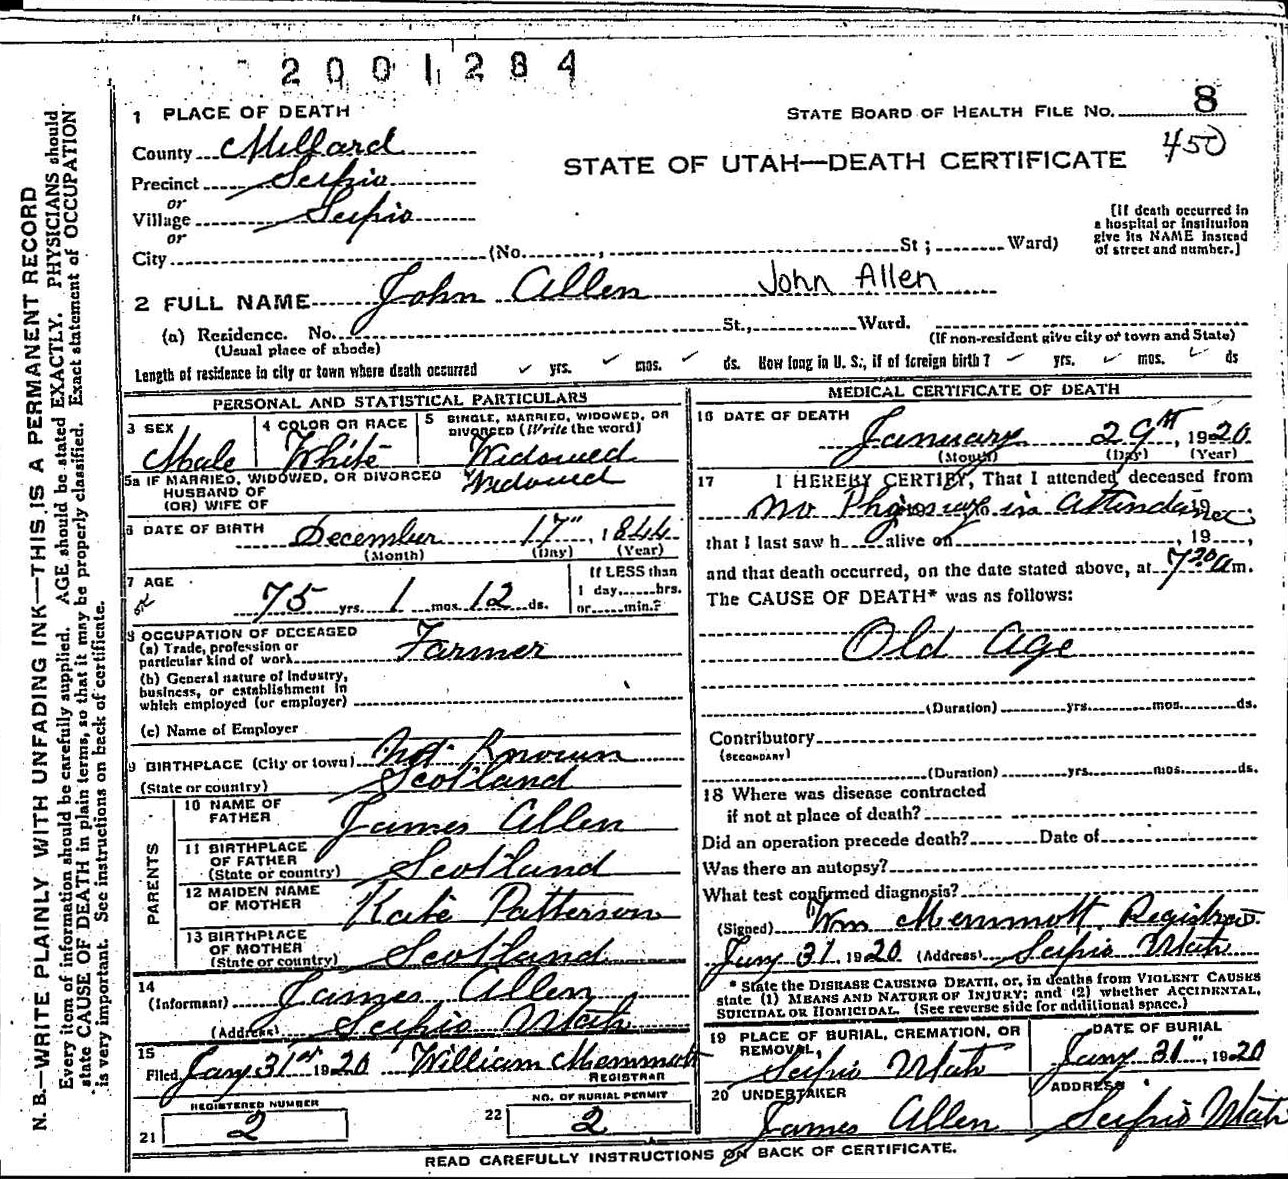 2001284
1 PLACE OF DEATH
STATE BOARD OF HEALTH FILE NO. 8
450
County Millard
STATE OF UTAH—DEATH CERTIFICATE
Precinct Scipio
or
Village Scipio
or
City (No. , St ; Ward)
[If death occurred in
a hospital or institution
give its NAME instead
of street and number.]
2 FULL NAME John Allen John Allen
(a) Residence. No. St., Ward.
(Usual place of abode)
(If non-resident give city or town and State)
Length of residence in city or town where death occurred yrs. mos. ds. How long in U. S., if of foreign birth? yrs. mos. ds
PERSONAL AND STATISTICAL PARTICULARS
3 SEX
Male
4 COLOR OR RACE
White
5 SINGLE, MARRIED, WIDOWED, OR
DIVORCED (Write the word)
Widowed
5a IF MARRIED, WIDOWED, OR DIVORCED
HUSBAND OF
(OR) WIFE OF
Widowed
6 DATE OF BIRTH December 17", 1844
(Month) (Day) (Year)
7 AGE
75 yrs. 1 mos. 12 ds.
If LESS than
1 day, hrs.
or min.?
8 OCCUPATION OF DECEASED
(a) Trade, profession or
particular kind of work Farmer
(b) General nature of industry,
business, or establishment in
which employed (or employer)
(c) Name of Employer
9 BIRTHPLACE (City or town) Not Known
(State or country) Scotland
PARENTS
10 NAME OF
FATHER James Allen
11 BIRTHPLACE
OF FATHER
(State or country) Scotland
12 MAIDEN NAME
OF MOTHER Kate Patterson
13 BIRTHPLACE
OF MOTHER
(State or country) Scotland
14
(Informant) James Allen
(Address) Scipio Utah
15
Filed Jany 31st 1920 William Memmott
REGISTRAR
REGISTERED NUMBER
21 2
NO. OF BURIAL PERMIT
22 2
MEDICAL CERTIFICATE OF DEATH
16 DATE OF DEATH
January 29th, 1920
(Month) (Day) (Year)
17 I HEREBY CERTIFY, That I attended deceased from
No in Attendance 19
that I last saw h alive on , 19 ,
and that death occurred, on the date stated above, at 7 20 a m.
The CAUSE OF DEATH* was as follows:
Old Age
(Duration) yrs. mos. ds.
Contributory
(SECONDARY)
(Duration) yrs. mos. ds.
18 Where was disease contracted
if not at place of death?
Did an operation precede death? Date of
Was there an autopsy?
What test confirmed diagnosis?
(Signed) Wm Memmott, Registrar
Jany 31 1920 (Address) Scipio Utah
* State the DISEASE CAUSING DEATH, or, in deaths from VIOLENT CAUSES
state (1) MEANS AND NATURE OF INJURY; and (2) whether ACCIDENTAL,
SUICIDAL OR HOMICIDAL. (See reverse side for additional space.)
19 PLACE OF BURIAL, CREMATION, OR
REMOVAL,
Scipio Utah
DATE OF BURIAL
Jany 31", 1920
20 UNDERTAKER
James Allen
ADDRESS
Scipio Utah
READ CAREFULLY INSTRUCTIONS ON BACK OF CERTIFICATE.
N. B.—WRITE PLAINLY WITH UNFADING INK—THIS IS A PERMANENT RECORD
Every item of information should be carefully supplied. AGE should be stated EXACTLY. PHYSICIANS should
state CAUSE OF DEATH in plain terms, so that it may be properly classified. Exact statement of OCCUPATION
is very important. See instructions on back of certificate.